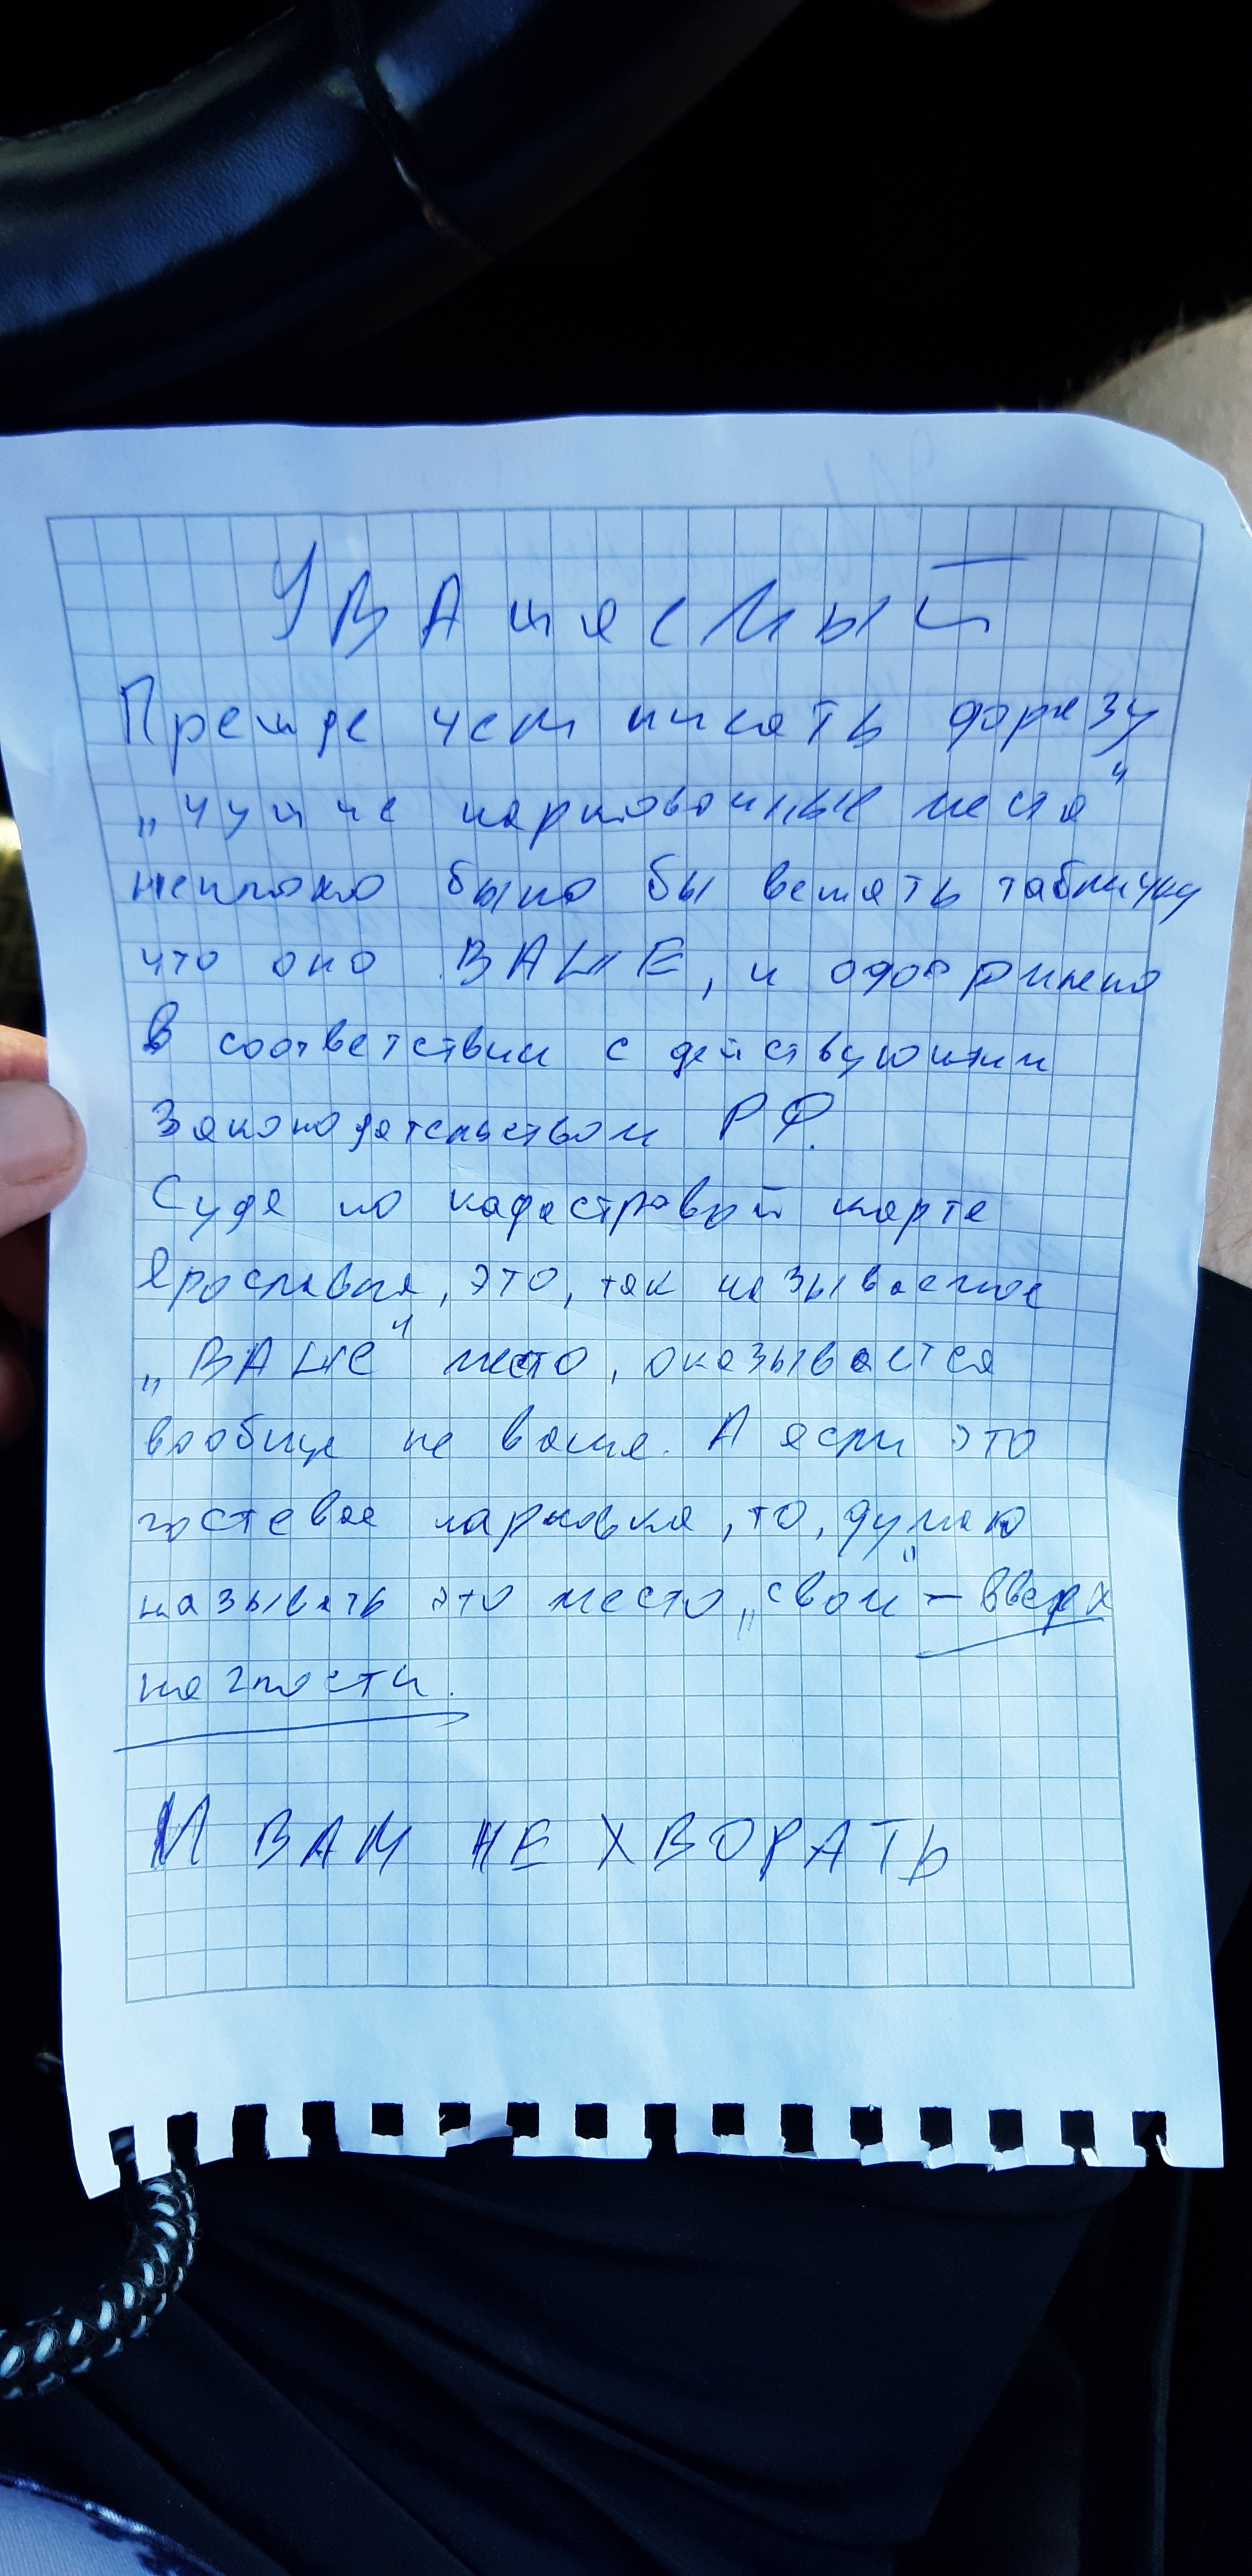 УВАжаемый
Прежде чем писать фразу
„чужие парковочные места"
неплохо было бы вешать табличку
что оно ВАШЕ, и оформлено
в соответствии с действующим
Законодательством РФ.
Судя по кадастровой карте
Ярославля, это, так называемое
„ВАШЕ" место, оказывается
вообще не ваше. А если это
гостевая парковка, то, думаю
называть это место „своим" – вверх
наглости.
И ВАМ НЕ ХВОРАТЬ